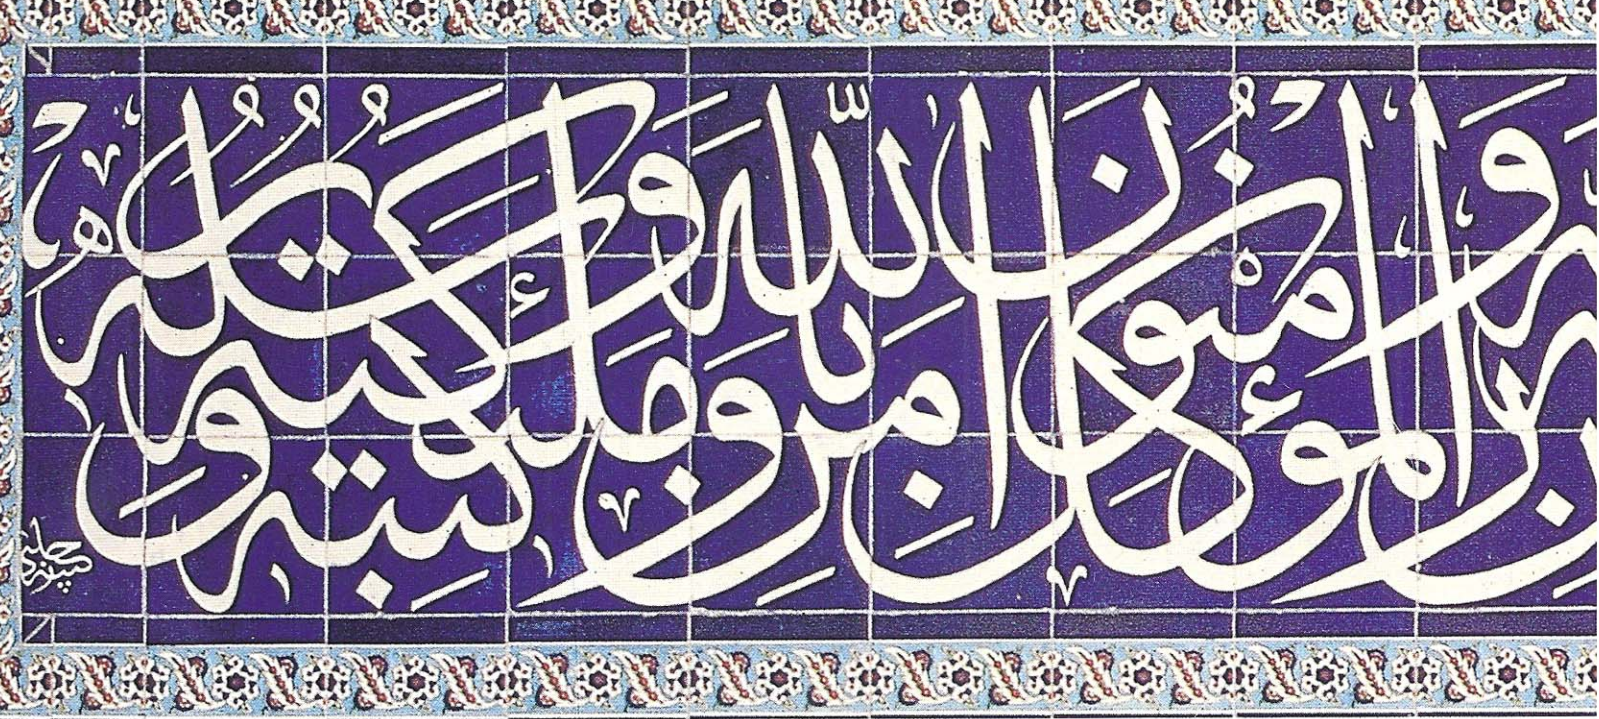 رَبِّهِ وَالْمُؤْمِنُونَ كُلٌّ اٰمَنَ بِاللّٰهِ وَمَلٰئِكَتِهِ وَكُتُبِهِ وَرُسُلِهِ